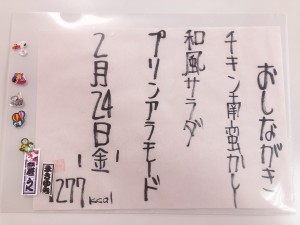 おしながき
チキン南蛮カレー
和風サラダ
プリンアラモード
2月24日金
1277kcal